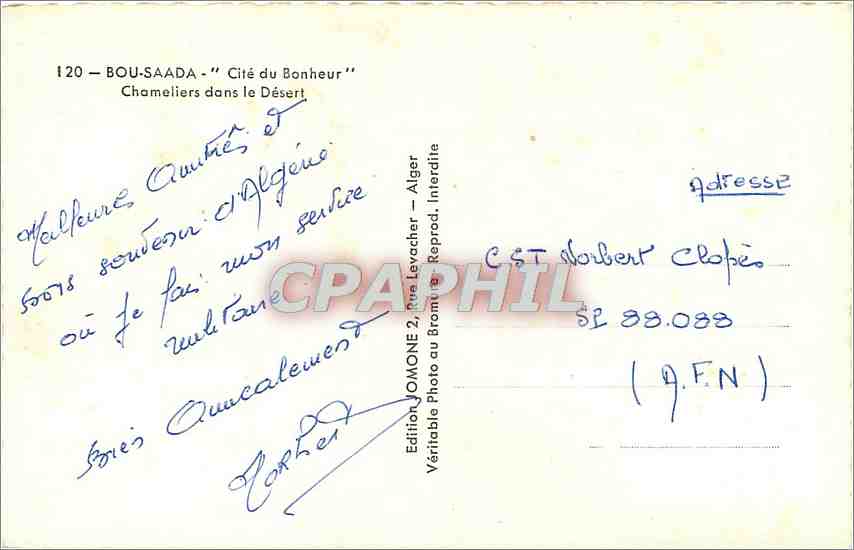 120 — BOU-SAADA - " Cité du Bonheur "
Chameliers dans le Désert
Meilleures Amitiés et
bons souvenir d'Algérie
où je fais mon service
militaire
bien Amicalement
Norbert
Edition JOMONE 2, Rue Levacher — Alger
Véritable Photo au Bromure - Reprod. Interdite
CPAPHIL
Adresse
CST Norbert Clopès
SP 88.088
(A.F.N)